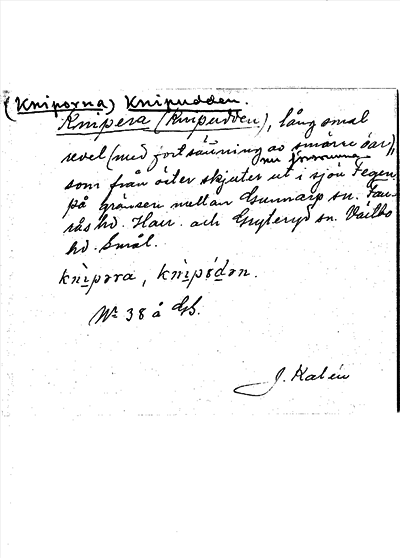 (Kniporna) Knipudden.
Knipera (Knipudden), lång smal
revel (med fortsättning av smärre öar),
nu försvunna
som från öster skjuter ut i sjön Fegen
på gränsen mellan Gunnarp sn. Fau-
rås hd. Hall. och Gryteryd sn. Västbo
hd. Smål.
knìpəra, knìpədən.
Nr 38 å GS.
J. Kalén